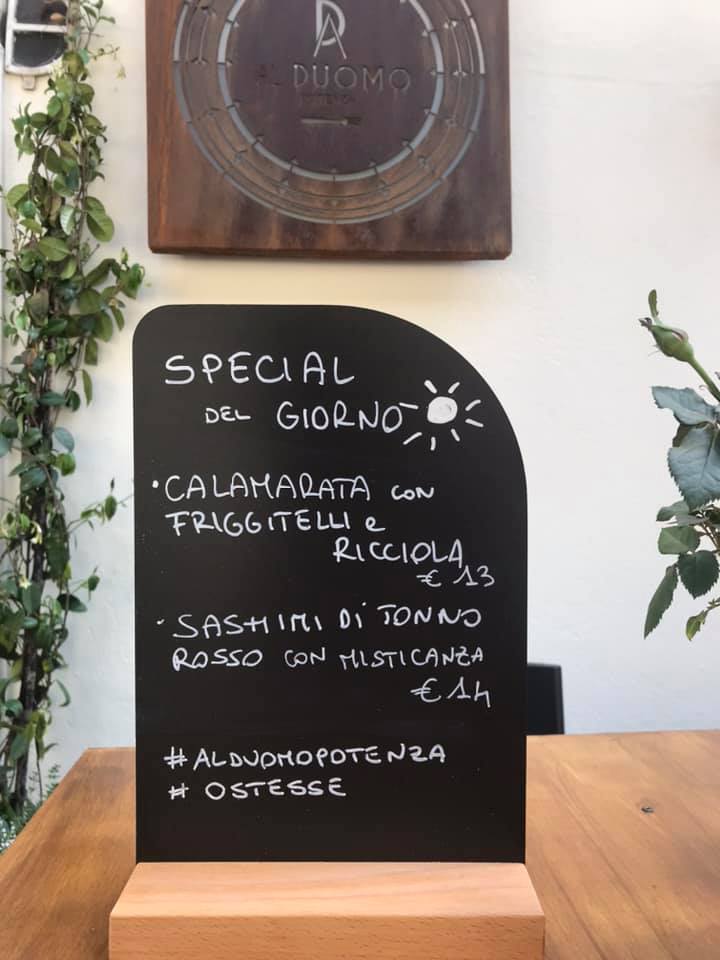 AL DUOMO
SPECIAL
DEL GIORNO
• CALAMARATA CON
FRIGGITELLI e
RICCIOLA
€ 13
• SASHIMI DI TONNO
ROSSO CON MISTICANZA
€ 14
#ALDUOMOPOTENZA
# OSTESSE